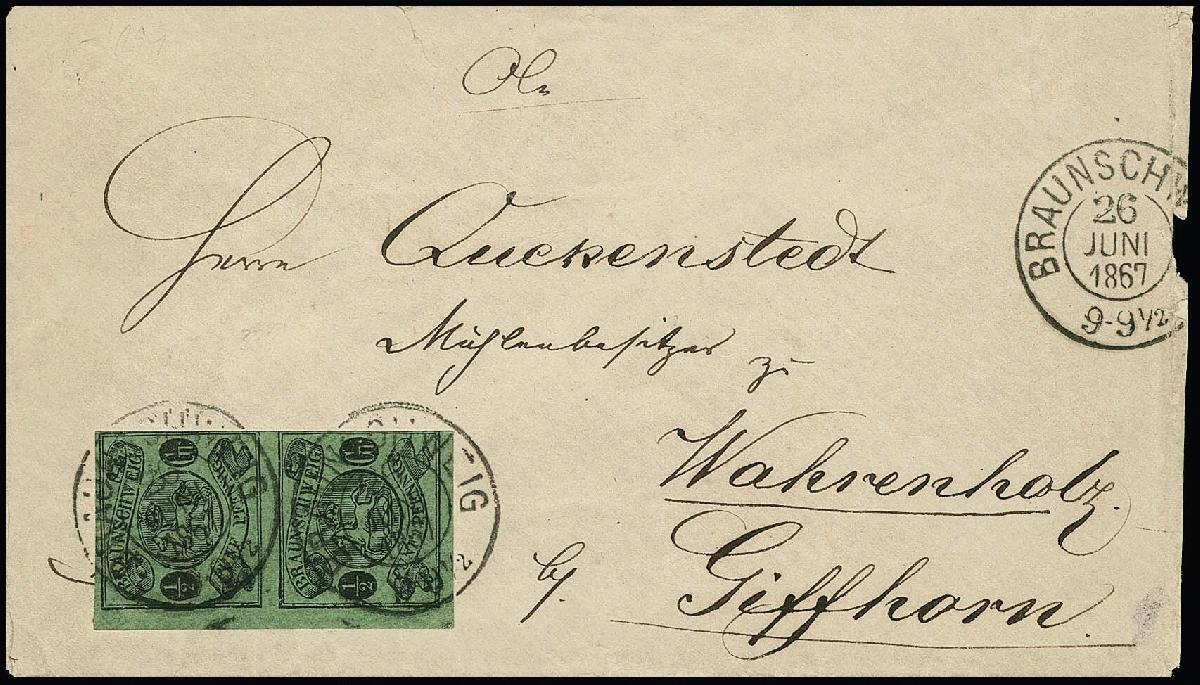 Herrn Quckenstedt
Mühlenbesitzer zu
Wahrenholz.
b/. Giffhorn.
BRAUNSCHW
26
JUNI
1867
9-9½
BRAUNSCHWEIG
½
BRAUNSCHWEIG
½
IG